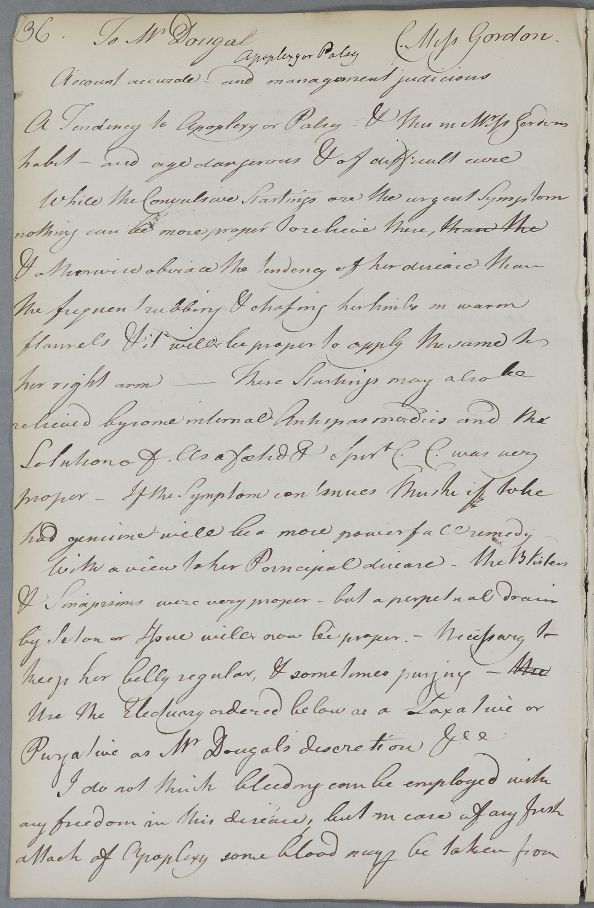 36. To Mr Dougal (Miss Gordon.
Apoplexy or Palsy
Account accurate and management judicious
A Tendency to Apoplexy or Palsy - & this in Mrs Gordons
habit - and age dangerous & of difficult cure
While the Convulsive Startings are the urgent Symptom
nothing can be more proper to relieve these, than the
& otherwise obviate the tendency of her disease than
the frequent rubbing & chafing her limbs in warm
flannels & it will be proper to apply the same to
her right arm — These Startings may also be
relieved by some internal Antispasmodics and the
Solution of Asafœtid & Spirt C. C. was very
proper - If the Symptom continues Musk if to be
had genuine will be a more powerfull remedy
With a view to her Principal disease - the Blisters
& Sinapisms were very proper - but a perpetual drain
by Seton or Issue will now be proper. - Necessary to
keep her belly regular, & sometimes purging - the
Use the Electuary ordered below as a Laxative or
Purgative as Mr Dougal's discretion &ce
I do not think bleeding can be employed with
any freedom in this disease, but in case of any fresh
attack of Apoplexy some blood may be taken from